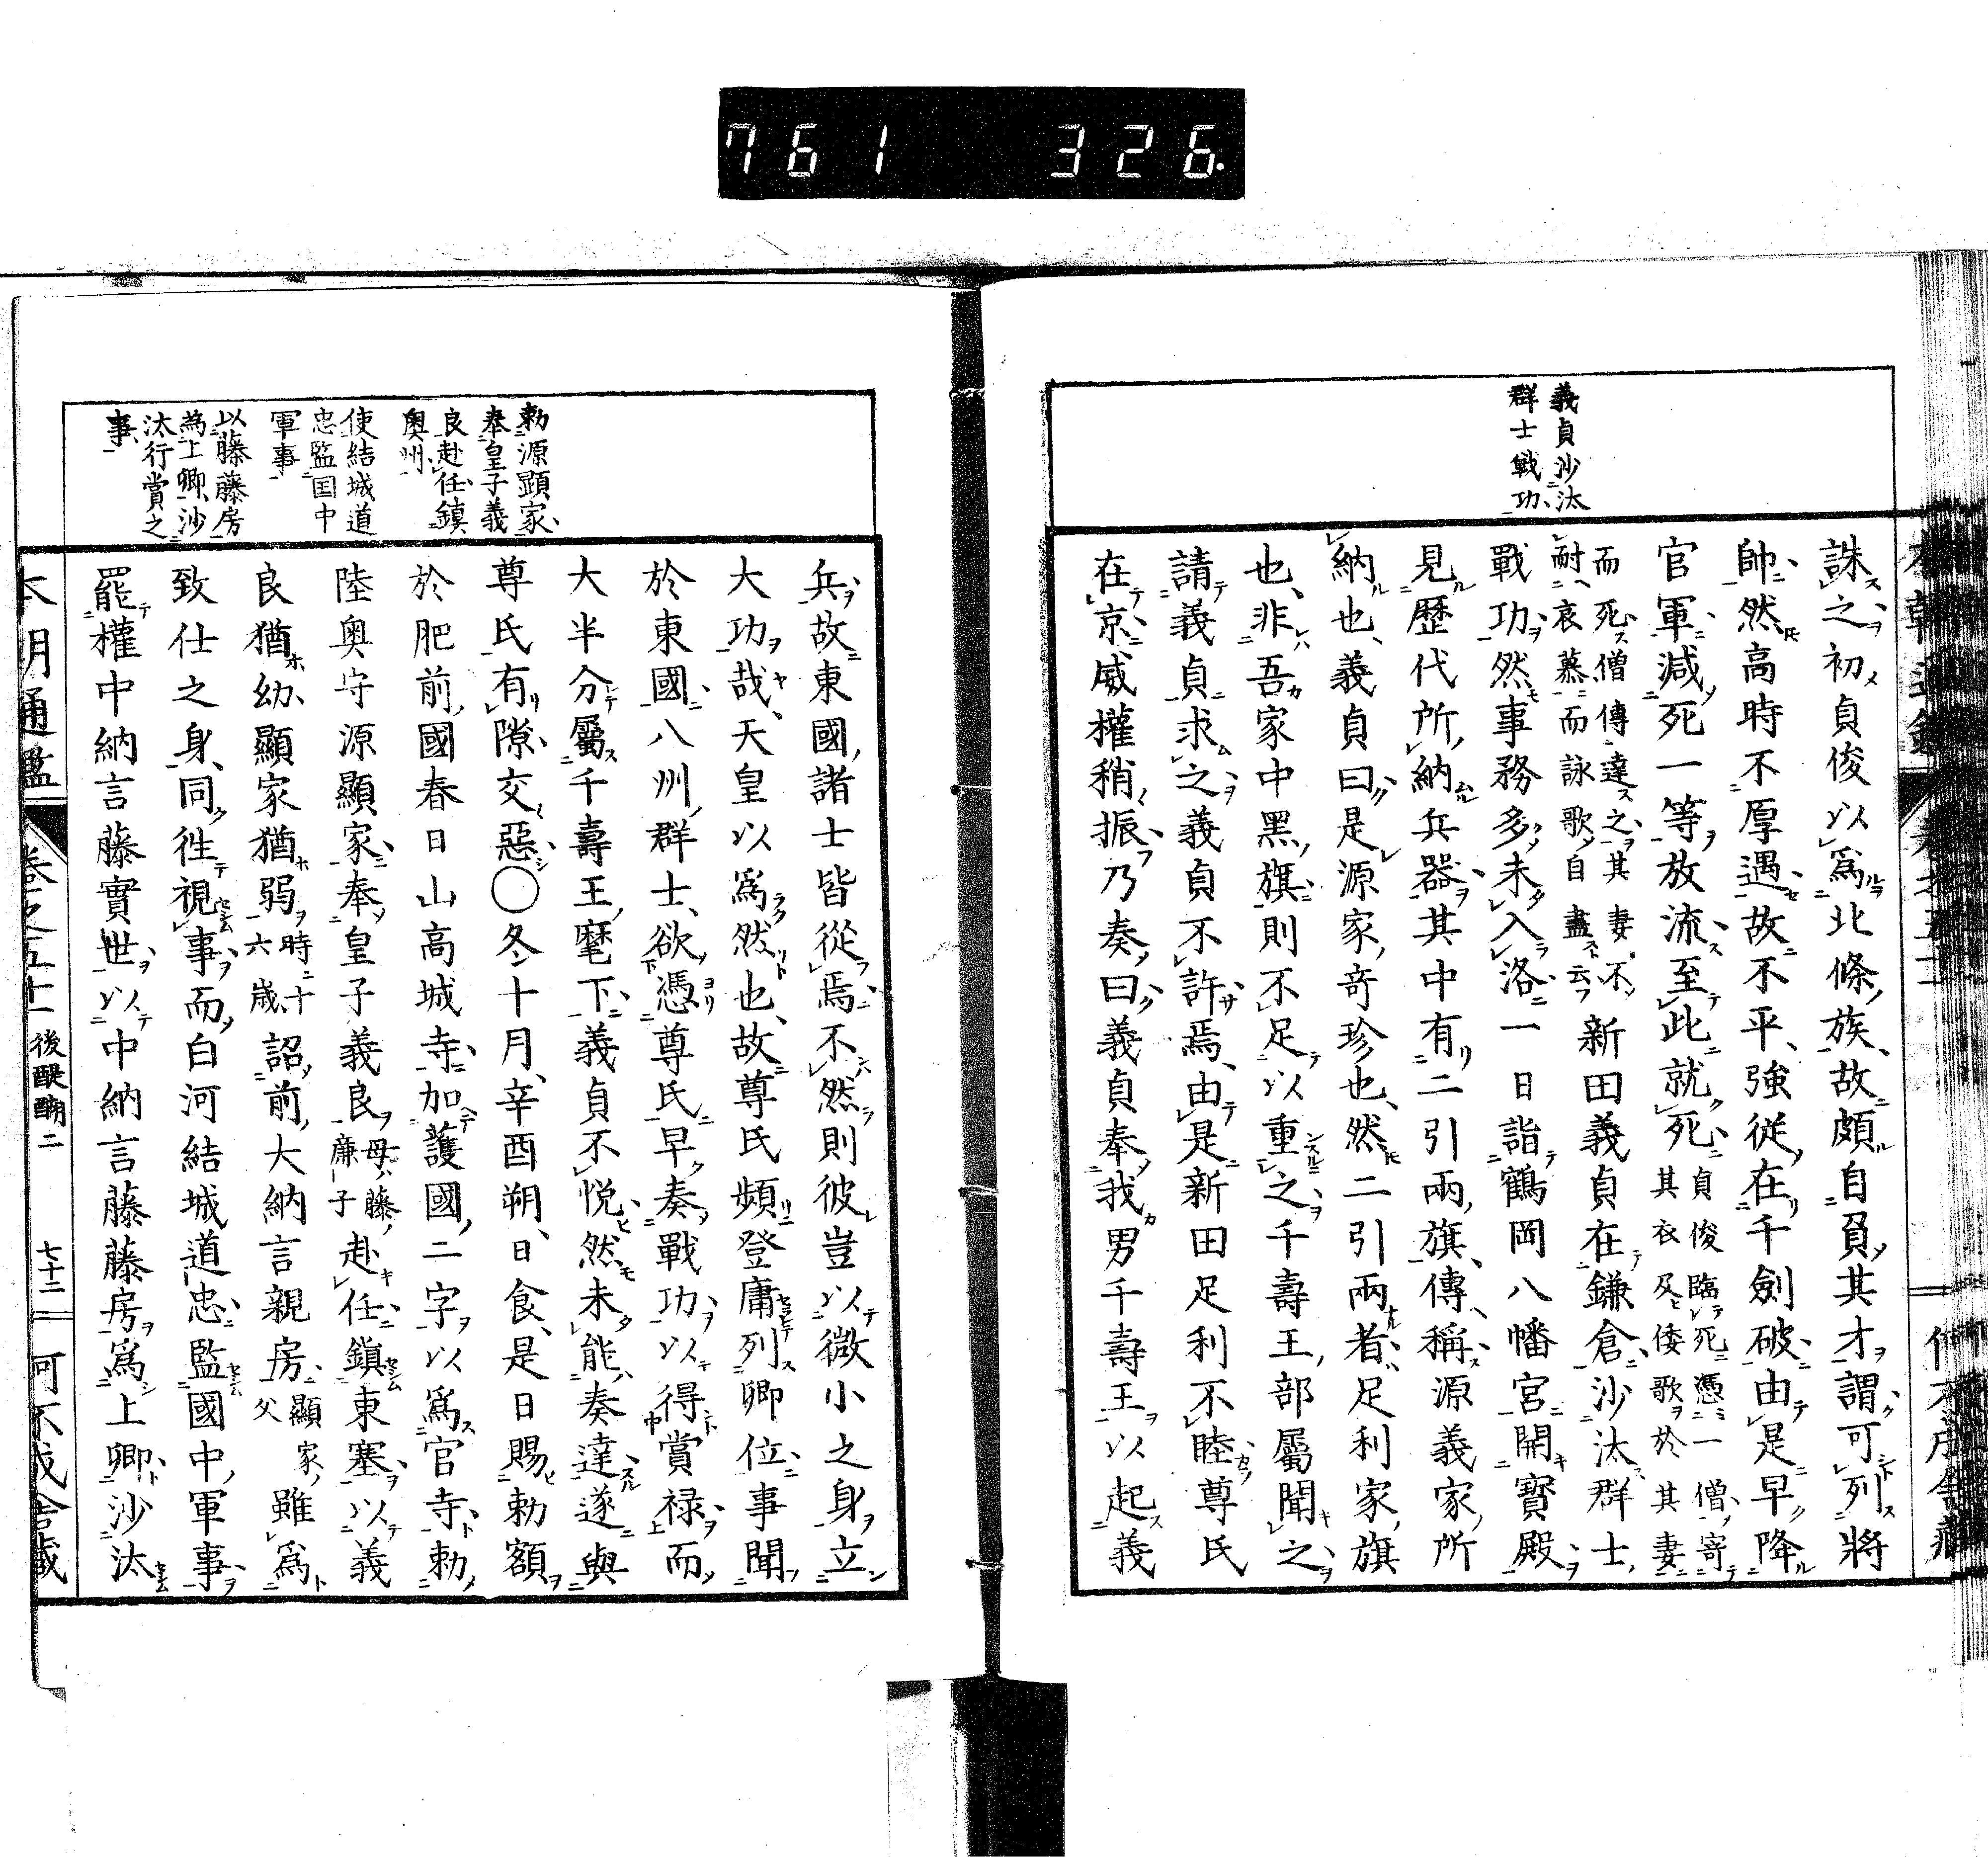 761 326
義貞沙汰
群士戰功
誅之初貞俊以爲北條族故頗自負其才謂可列將
帥然高時不厚遇故不平強從在千劍破由是早降
官軍減死一等放流至此就死貞俊臨死憑一僧寄
其衣及倭歌於其妻
而死僧傳達之其妻不
耐哀慕而詠歌自盡云新田義貞在鎌倉沙汰群士
戰功然事務多未入洛一日詣鶴岡八幡宮開寳殿
見歷代所納兵器其中有二引兩旗傳稱源義家所
納也義貞曰是源家奇珍也然二引兩者足利家旗
也非吾家中黑旗則不足以重之千壽王部屬聞之
請義貞求之義貞不許焉由是新田足利不睦尊氏
在京威權稍振乃奏曰義貞奉我男千壽王以起義
勅源顯家
奉皇子義
良赴任鎮
奧州
使結城道
忠監国中
軍事
以藤藤房
為上卿沙
汰行賞之
事
兵故東國諸士皆從焉不然則彼豈以微小之身立
大功哉天皇以爲然也故尊氏頻登庸列卿位事聞
於東國八州群士欲憑尊氏早奏戰功以得賞禄而
大半分屬千壽王麾下義貞不悦然未能奏達遂與
尊氏有隙交惡〇冬十月辛酉朔日食是日賜勅額
於肥前國春日山高城寺加護國二字以爲官寺勅
陸奥守源顯家奉皇子義良母藤
廉子赴任鎮東塞以義
良猶幼顯家猶弱時十
六歲詔前大納言親房顯家
父雖爲
致仕之身同徃視事而白河結城道忠監國中軍事
罷權中納言藤實世以中納言藤藤房爲上卿沙汰
本朝通鑑 卷之五十一 後醍醐二 七十二 可不成舎藏